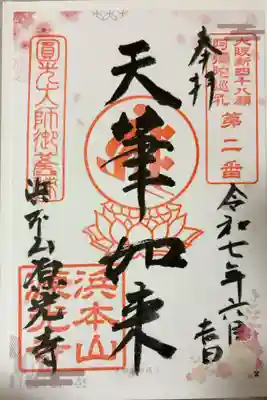 大阪新四十八願
阿彌陀巡礼
第二番
奉拝
令和七年六月吉日
天筆如来
圓光大師御舊蹟
浜本山源光寺
浜本山
源光寺